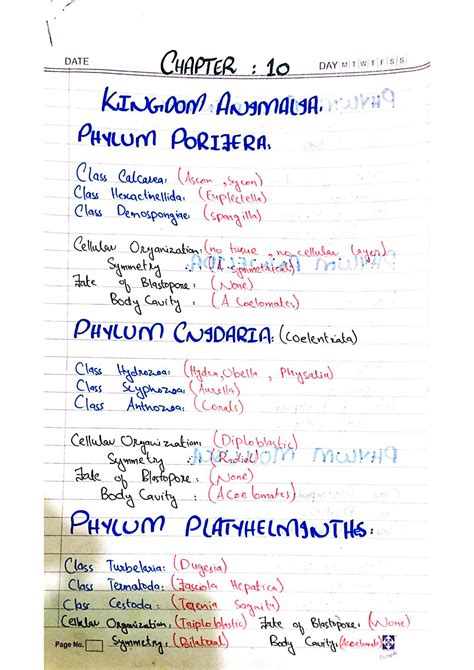 DATE CHAPTER : 10 DAY M T W T F S S
KINGDOM ANYMALYA.
PHYLUM PORIFERA:
Class Calcarea: (Ascon, Sycon)
Class Hexactinellida: (Euplectella)
Class Demospongiae (spongilla)
Cellular Organization: (no tissue, no cellular layer)
Symmetry : (A symmetrical)
Fate of Blastopore: (None)
Body Cavity : (A Coelomates)
PHYLUM CNYDARIA: (Coelentrata)
Class Hydrozoa: (Hydra, Obella, Physalia)
Class Scyphozoa: (Aurella)
Class Anthozoa: (Corals)
Cellular Organization: (Diploblastic)
Symmetry : (Radial)
Fate of Blastopore: (None)
Body Cavity : (Acoelomates)
PHYLUM PLATYHELMINTHS:
Class Turbelaria: (Dugesia)
Class Tematoda: (Fasciola Hepatica)
Class Cestoda: (Taenia Saginata)
Cellular Organization: (Triploblastic) Fate of Blastopore: (None)
Page No. Symmetry: (Bilateral) Body Cavity: (Acoelomate)